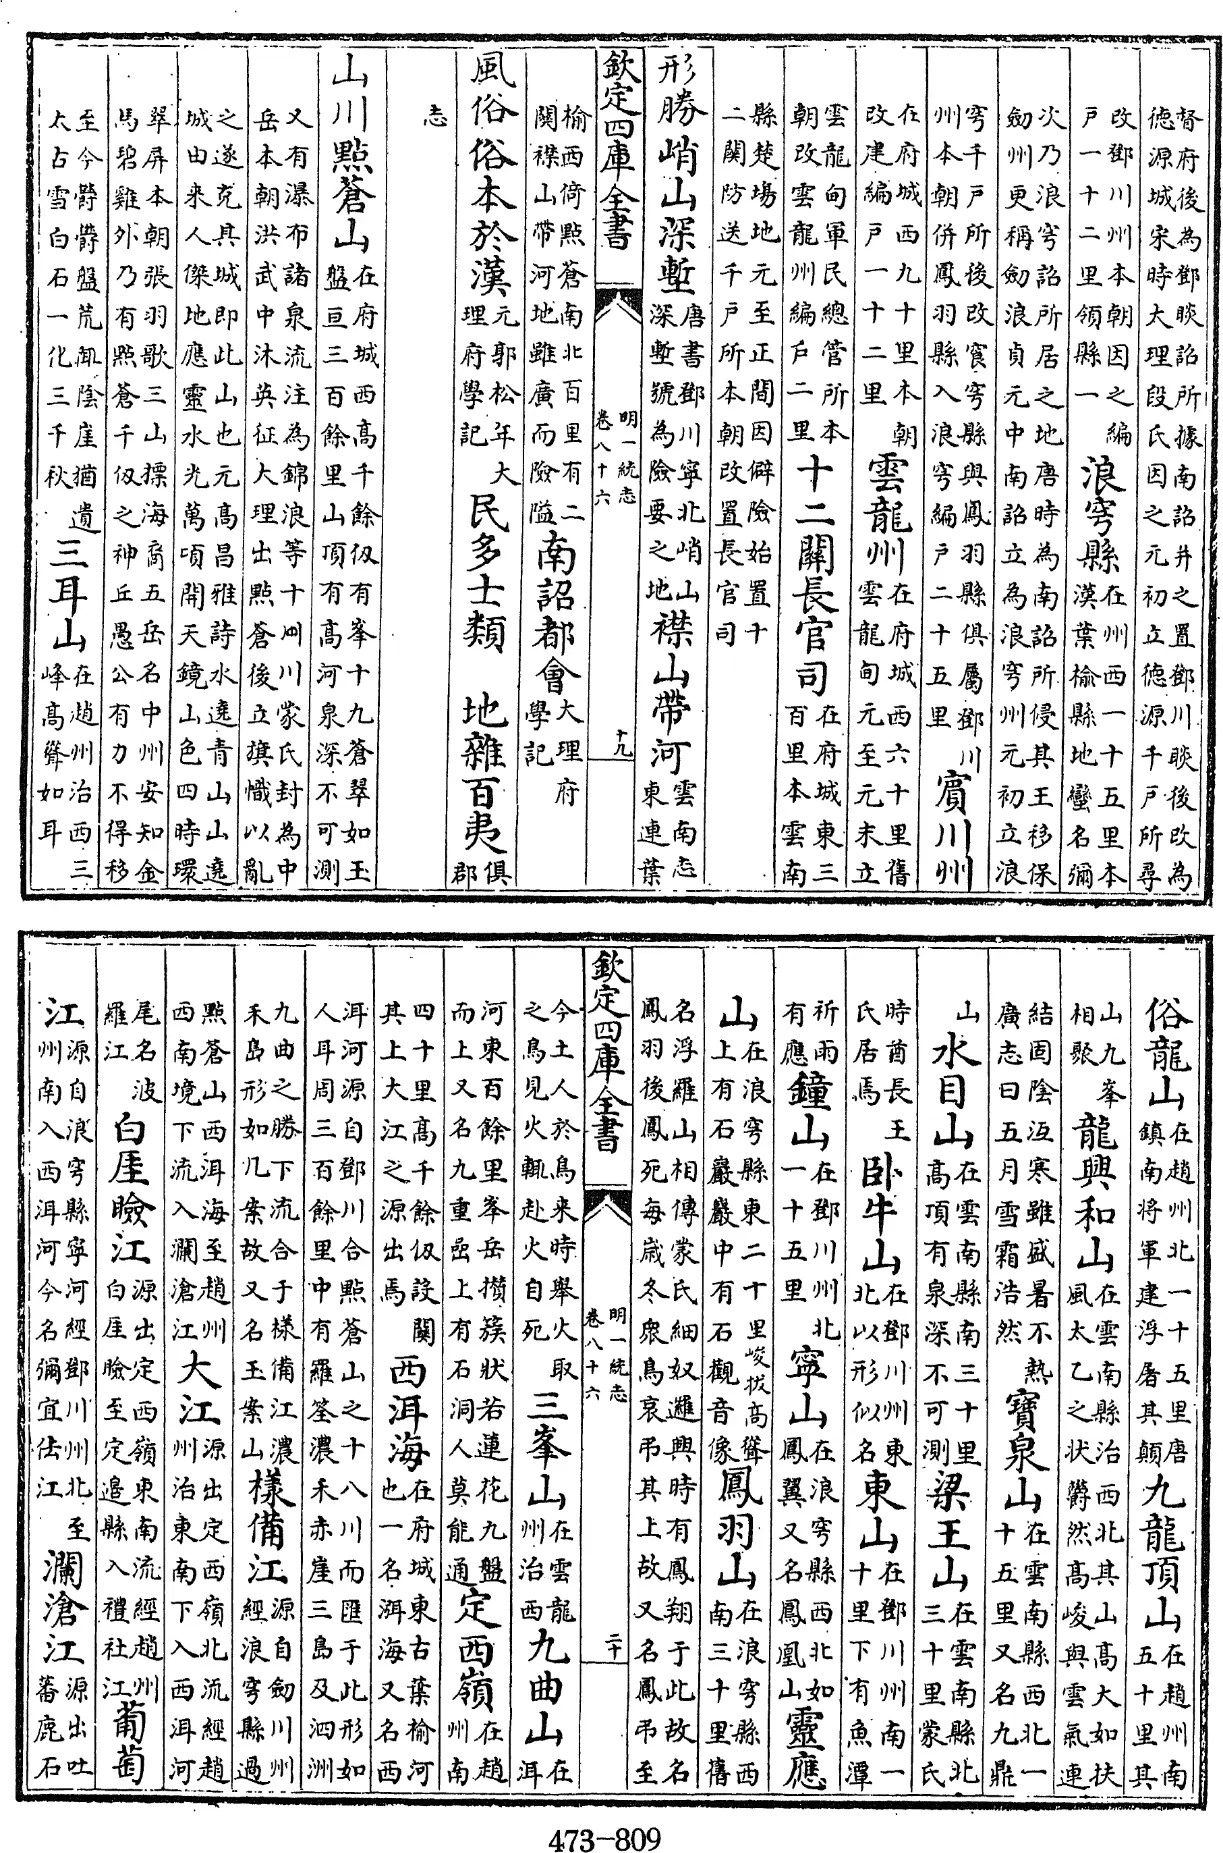 督府後為鄧睒詔所據南詔并之置鄧川睒後改為
德源城宋時大理段氏因之元初立德源千戶所尋
改鄧川州本朝因之編戶一十二里領縣一浪穹縣在州西一十五里本漢葉榆縣地蠻名彌
次乃浪穹詔所居之地唐時為南詔所侵其王移保
劒州更稱劒浪貞元中南詔立為浪穹州元初立浪
穹千戶所後改寘穹縣與鳳羽縣俱屬鄧川州本朝併鳳羽縣入浪穹編戶二十五里賓川州
在府城西九十里本朝改建編戶一十二里雲龍州在府城西六十里舊雲龍甸元至元末立
雲龍甸軍民總管所本朝改雲龍州編戶二里十二關長官司在府城東三百里本雲南
縣楚場地元至正間因僻險始置十
二關防送千戶所本朝改置長官司
形勝峭山深塹唐書鄧川寧北峭山深塹號為險要之地襟山帶河雲南志東連葉
欽定四庫全書 明一統志卷八十六 十九
榆西倚點蒼南北百里有二關襟山帶河地雖廣而險隘南詔都會大理府學記
風俗俗本於漢元郭松年大理府學記民多士類 地雜百夷俱郡
志
山川點蒼山在府城西高千餘仭有峯十九蒼翠如玉盤亘三百餘里山頂有高河泉深不可測
又有瀑布諸泉流注為錦浪等十八川蒙氏封為中
岳本朝洪武中沐英征大理出點蒼後立旗幟以亂
之遂克其城即此山也元高昌雅詩水遶青山山遶
城由来人傑地應靈水光萬頃開天鏡山色四時環
翠屏本朝張羽歌三山摽海裔五岳名中州安知金
馬碧雞外乃有㸃蒼千仭之神丘愚公有力不得移
至今欝欝盤荒陬陰崖猶遺太古雪白石一化三千秋三耳山在趙州治西三峰高聳如耳
俗龍山在趙州北一十五里唐鎮南將軍建浮屠其顛九龍頂山在趙州南五十里其
山九峯相聚龍興和山在雲南縣治西北其山高大如扶風太乙之状欝然高峻與雲氣連
結固陰沍寒雖盛暑不熱廣志曰五月雪霜浩然寶泉山在雲南縣西北一十五里又名九鼎
山水目山在雲南縣南三十里高頂有泉深不可測梁王山在雲南縣北三十里蒙氏
時酋長王氏居焉卧牛山在鄧川州東北以形似名東山在鄧川州南一十里下有魚潭
祈雨有應鐘山在鄧川州北一十五里寧山在浪穹縣西北如鳳翼又名鳳凰山靈應
山在浪穹縣東二十里峻拔高聳上有石巖巖中有石觀音像鳳羽山在浪穹縣西南三十里舊
名浮羅山相傳蒙氏細奴邏興時有鳳翔于此故名
鳳羽後鳳死每歲冬衆鳥哀弔其上故又名鳳弔至
欽定四庫全書 明一統志卷八十六 二十
今土人於鳥来時舉火取之鳥見火輒赴火自死三峯山在雲龍州治西九曲山在洱
河東百餘里峯岳攅簇状若蓮花九盤而上又名九重嵒上有石洞人莫能通定西嶺在趙州南
四十里高千餘仭設關其上大江之源出焉西洱海在府城東古葉榆河也一名洱海又名西
洱河源自鄧川合點蒼山之十八川而匯于此形如
人耳周三百餘里中有羅筌濃禾赤崖三島及泗洲
九曲之勝下流合于様備江濃禾島形如几案故又名玉案山様備江源自劒川州經浪穹縣過
點蒼山西洱海至趙州西南境下流入瀾滄江大江源出定西嶺北流經趙州治東南下入西洱河
尾名波羅江白厓瞼江源出定西嶺東南流經趙州白厓瞼至定邉縣入禮社江葡萄
江源自浪穹縣寧河經鄧川州北至州南入西洱河今名彌宜佉江瀾滄江源出吐蕃鹿石
473-809